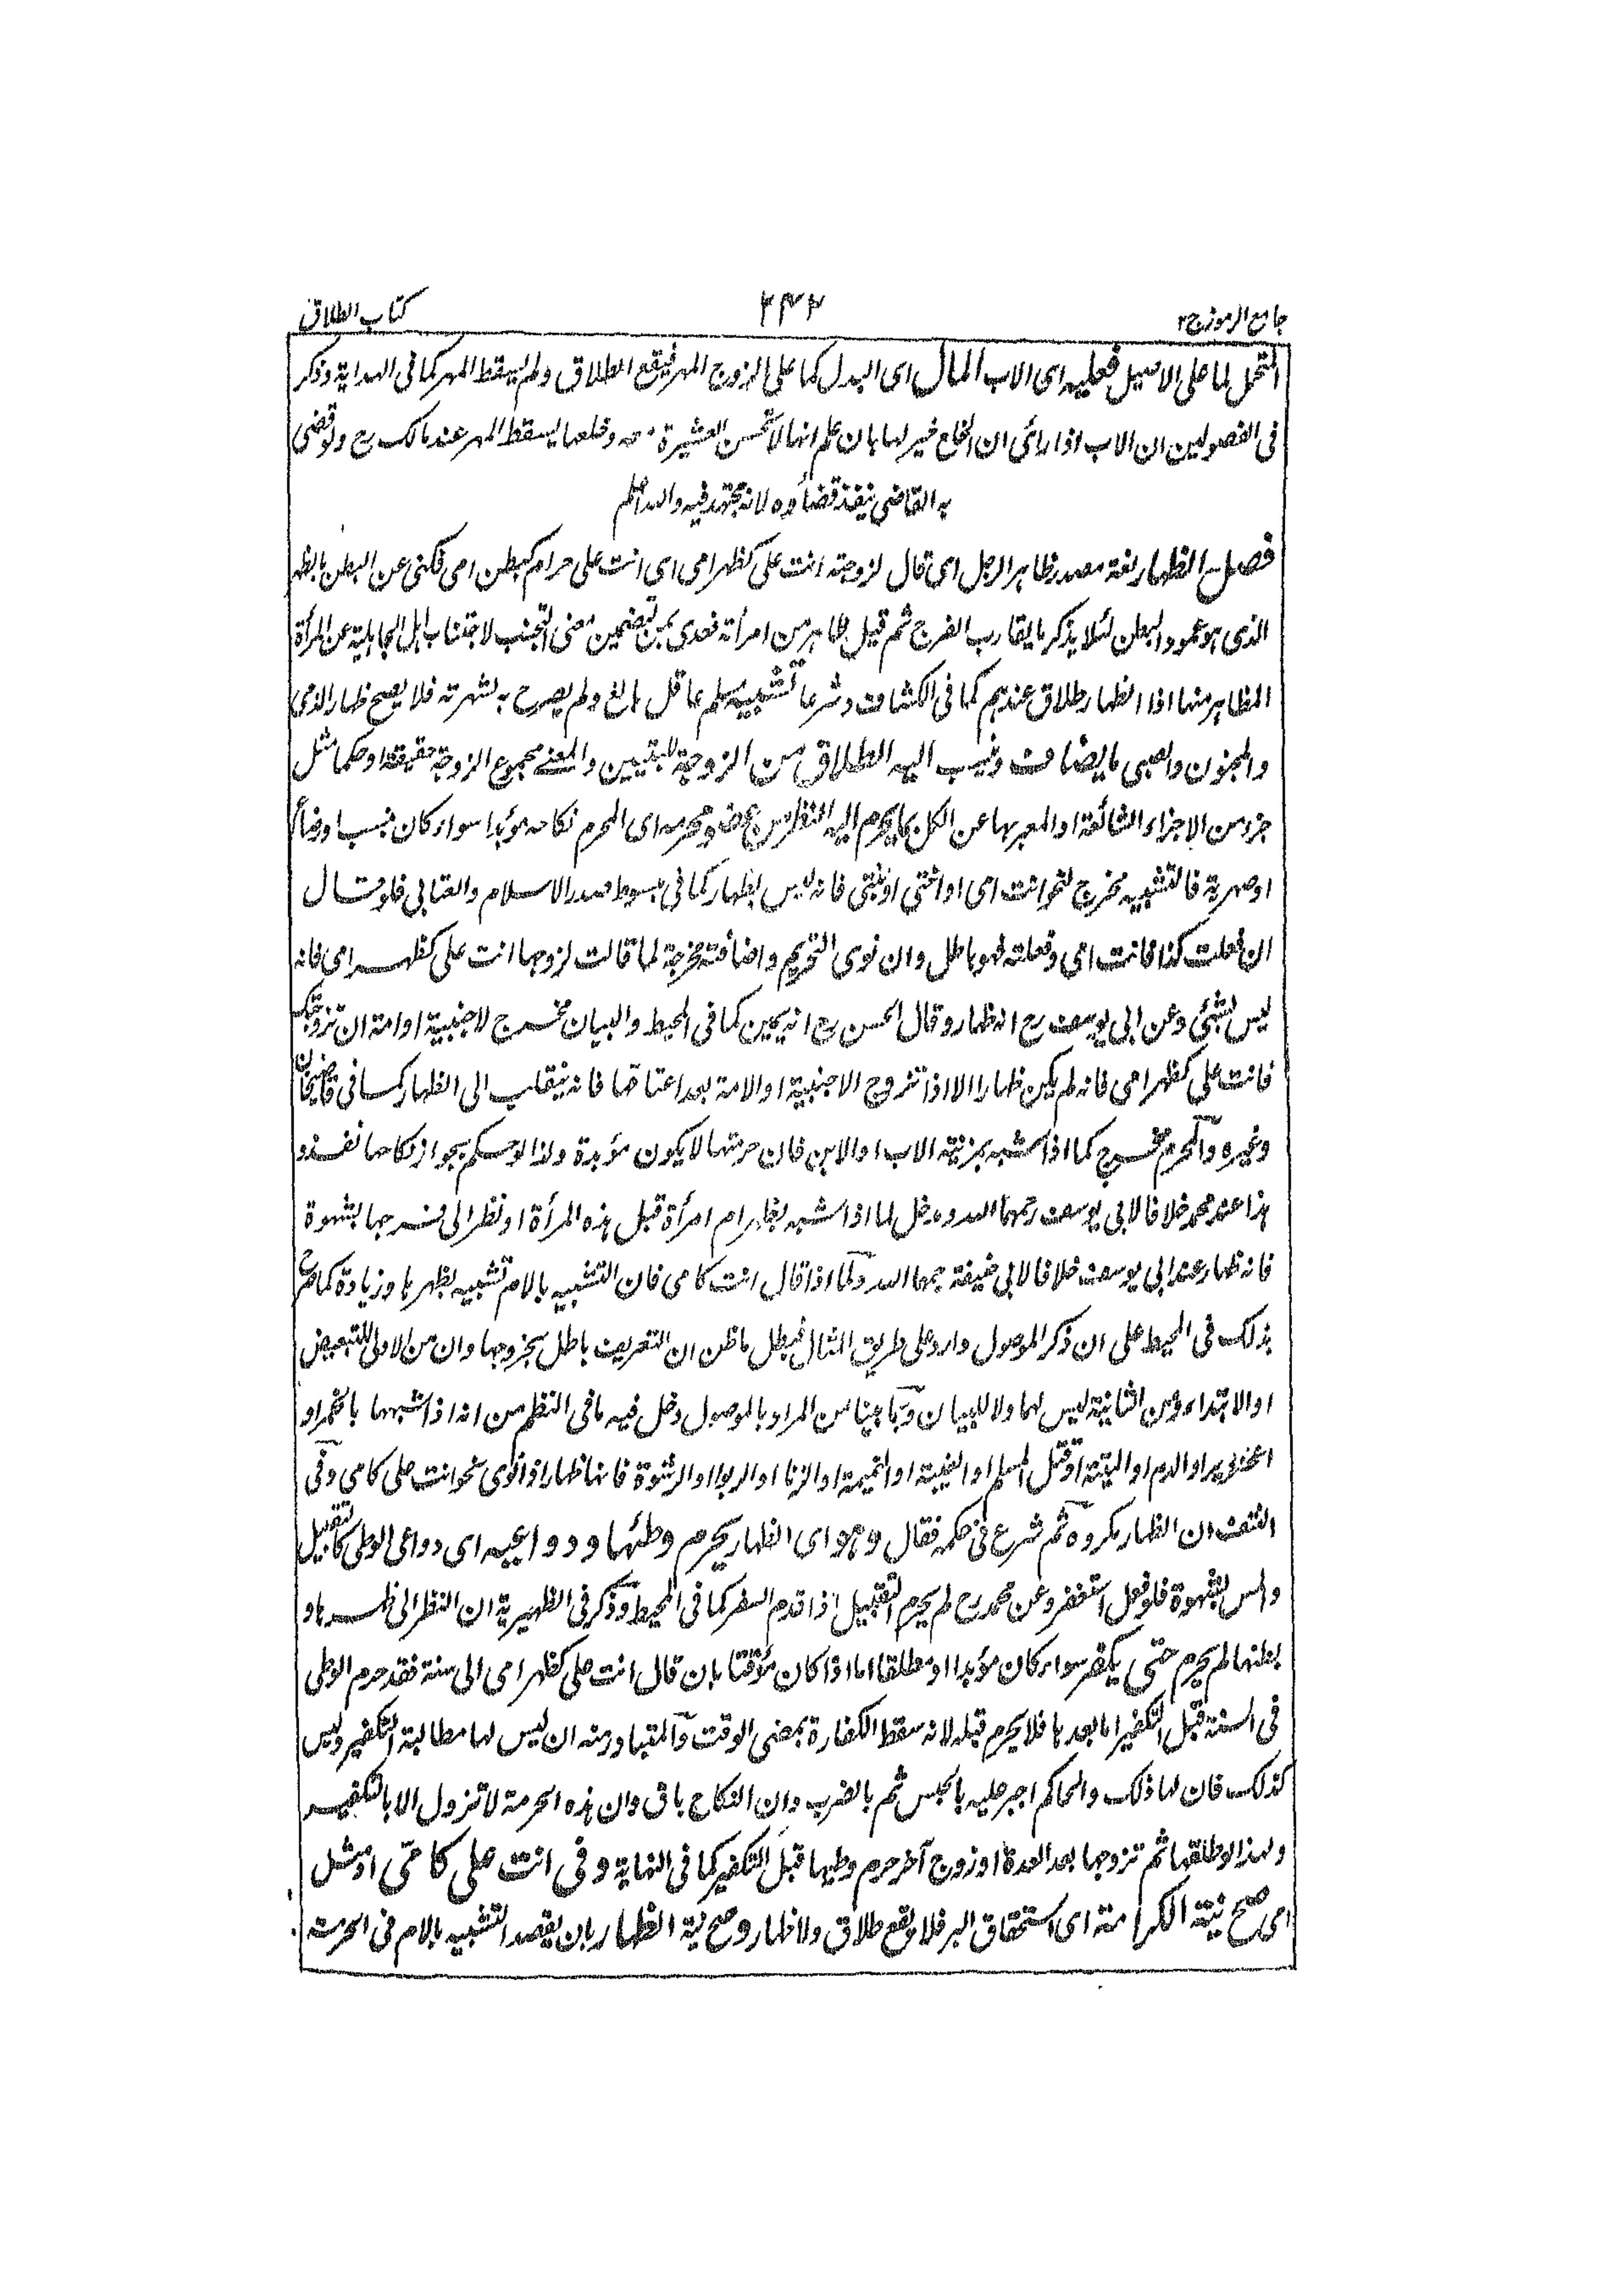 جامع الرموز ج٢
٢٤٢
كتاب الطلاق
المتحمل لما على الاصيل فعليه اى الاب المال اى البدل كما على الزوج المهر فيقع الطلاق ولم يسقط المهر كما فى الهداية وذكر
فى الفصولين ان الاب اذا رأى ان الخلع خير لها بان علم انها لا تحسن العشيرة معه وخلعها يسقط المهر عند مالك رح ولو قضى
به القاضى ينفذ قضاؤه لانه مجتهد فيه والله اعلم
فصل الظهار لغة مصدر ظاهر الرجل اى قال لزوجته انت على كظهر امى اى انت على حرام كبطن امى فكنى عن البطن بالظهر
الذى هو عمود البطن لئلا يذكر ما يقارب الفرج ثم قيل ظاهر من امرأته فعدى بمن لتضمين معنى التجنب لاجتناب اهل الجاهلية عن المرأة
المظاهر منها اذ الظهار طلاق عندهم كما فى الكشاف وشرعا تشبيه مسلم عاقل بالغ ولم يصرح به لشهرته فلا يصح ظهار الذمى
والمجنون والصبى ما يضاف وينسب اليه الطلاق من الزوجة للتبيين والمعنى مجموع الزوجة حقيقة او حكما مثل
جزء من الاجزاء الشائعة او المعبر بها عن الكل بما يحرم اليه النظر من عضو محرمه اى المحرم نكاحه مؤبدا سواء كان بنسب او رضاع
او صهرية فالتشبيه مخرج لنحو انت امى او اختى او بنتى فانه ليس بظهار كما فى مبسوط صدر الاسلام والعتابى فلو قال
ان فعلت كذا فانت امى وفعلته فهو باطل وان نوى التحريم واضافته مخرجة لما قالت لزوجها انت على كظهر امى فانه
ليس بشئ وعن ابى يوسف رح انه ظهار وقال الحسن رح انه يمين كما فى المحيط والبيان مخرج لاجنبية او امة ان تزوجتك
فانت على كظهر امى فانه لم يكن ظهارا الا اذا تزوج الاجنبية او الامة بعد اعتاقها فانه ينقلب الى الظهار كما فى قاضيخان
وغيره والمحرم مخرج كما اذا شبه بمزنية الاب او الابن فان حرمتها لا يكون مؤبدة ولذا لو حكم بجواز نكاحها نفذ و
هذا عند محمد خلافا لابى يوسف رحمهما الله ودخل لما اذا شبه بظهر ام امرأة قبل هذه المرأة او نظر الى فرجها بشهوة
فانه ظهار عند ابى يوسف خلافا لابى حنيفة رحمهما الله ولما اذا قال انت كامى فان التشبيه بالام تشبيه بظهرها وزيادة كما صرح
بذلك فى المحيط على ان ذكر الموصول وارد على طريق المثال فبطل ما ظن ان التعريف باطل بخروجها وان من الاولى للتبعيض
او الابتداء ومن الثانية ليس لهما ولا للبيان وبما بينا من المراد بالموصول دخل فيه ما فى النظم من انه اذا شبهها بالخمر او
الخنزير او الدم او الميتة او قتل المسلم او الغيبة او النميمة او الزنا او الربوا او الرشوة فانها ظهار اذا نوى نحو انت على كامى وفى
النتف ان الظهار مكروه ثم شرع فى حكمه فقال وهو اى الظهار يحرم وطئها ودواعيه اى دواعى الوطى كالتقبيل
والمس بشهوة فلو فعل استغفر وعن محمد رح لم يحرم التقبيل اذا قدم السفر كما فى المحيط وذكر فى الظهيرية ان النظر الى ظهرها و
بطنها لم يحرم حتى يكفر سواء كان مؤبدا او مطلقا اما اذا كان مؤقتا بان قال انت على كظهر امى الى سنة فقد حرم الوطى
فى السنة قبل التكفير اما بعدها فلا يحرم قبله لانه سقط الكفارة بمضى الوقت والمتبادر منه ان ليس لها مطالبة التكفير وليس
كذلك فان لها ذلك والحاكم اجبر عليه بالحبس ثم بالضرب وان النكاح باق وان هذه الحرمة لا تزول الا بالتكفير
ولهذا لو طلقها ثم تزوجها بعد العدة او زوج آخر حرم وطيها قبل التكفير كما فى النهاية وفى انت على كامى او مثل
امى صح نية الكرامة اى استحقاق البر فلا يقع طلاق ولا ظهار وصح نية الظهار بان يقصد التشبيه بالام فى الحرمة